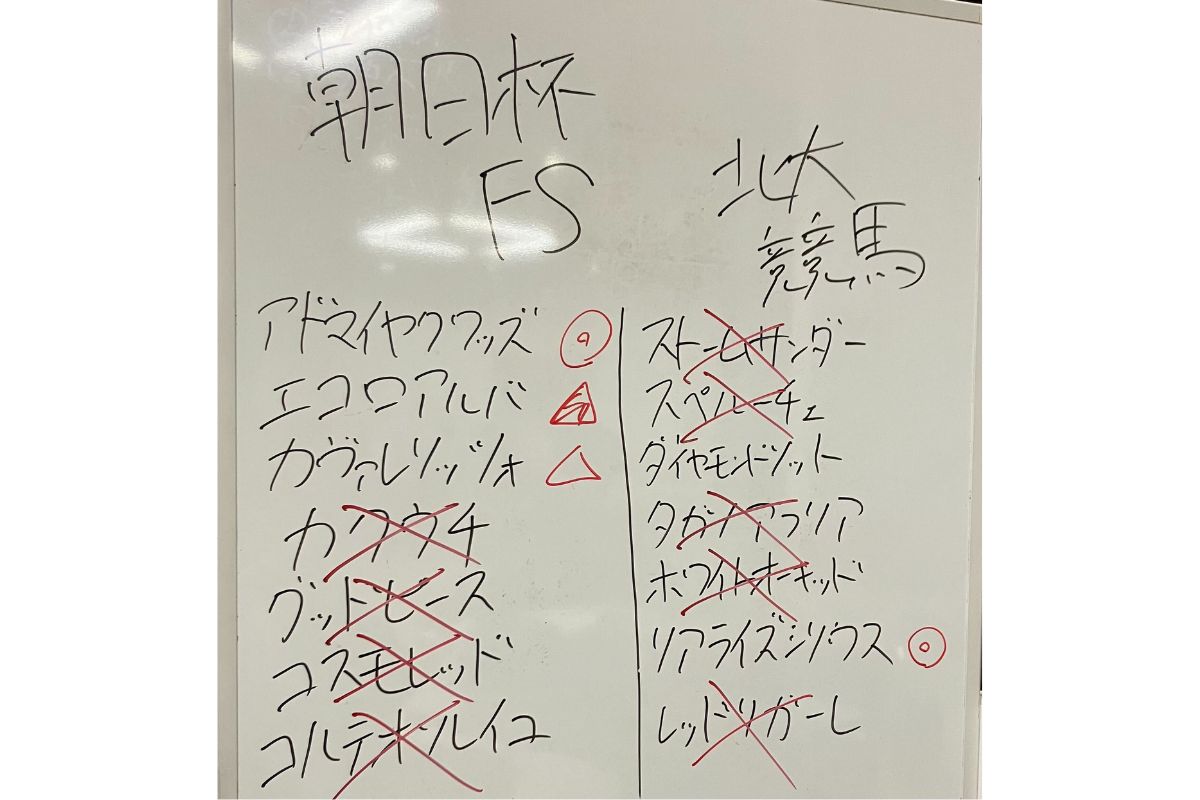 朝日杯
FS
北大
競馬
アドマイヤクワッズ ◎
エコロアルバ ▲
カヴァレリッツォ △
カクウチ
グッドピース
コスモレッド
コルテオソレイユ
ストームサンダー
スペルーチェ
ダイヤモンドノット
タガノアラリア
ホワイトオーキッド
リアライズシリウス ◎
レッドリガーレ